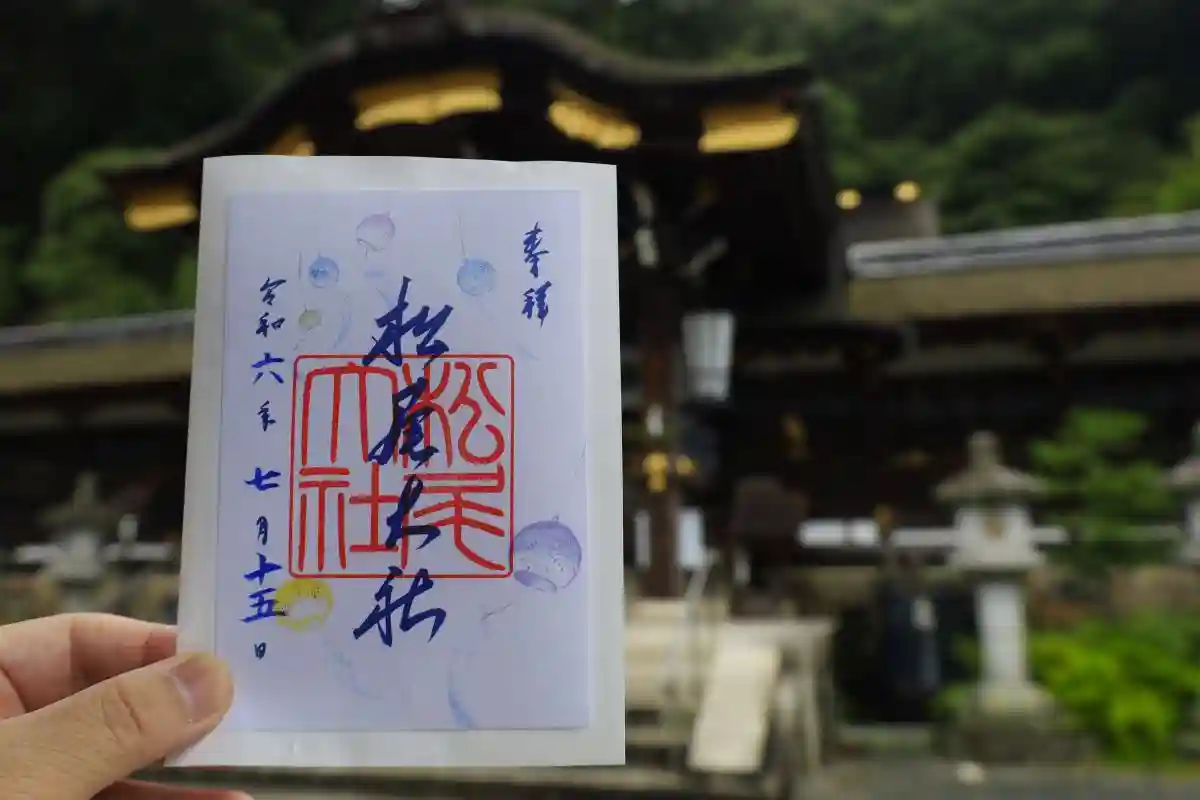 奉拝
松尾大社
松尾
大社
令和六年七月十五日